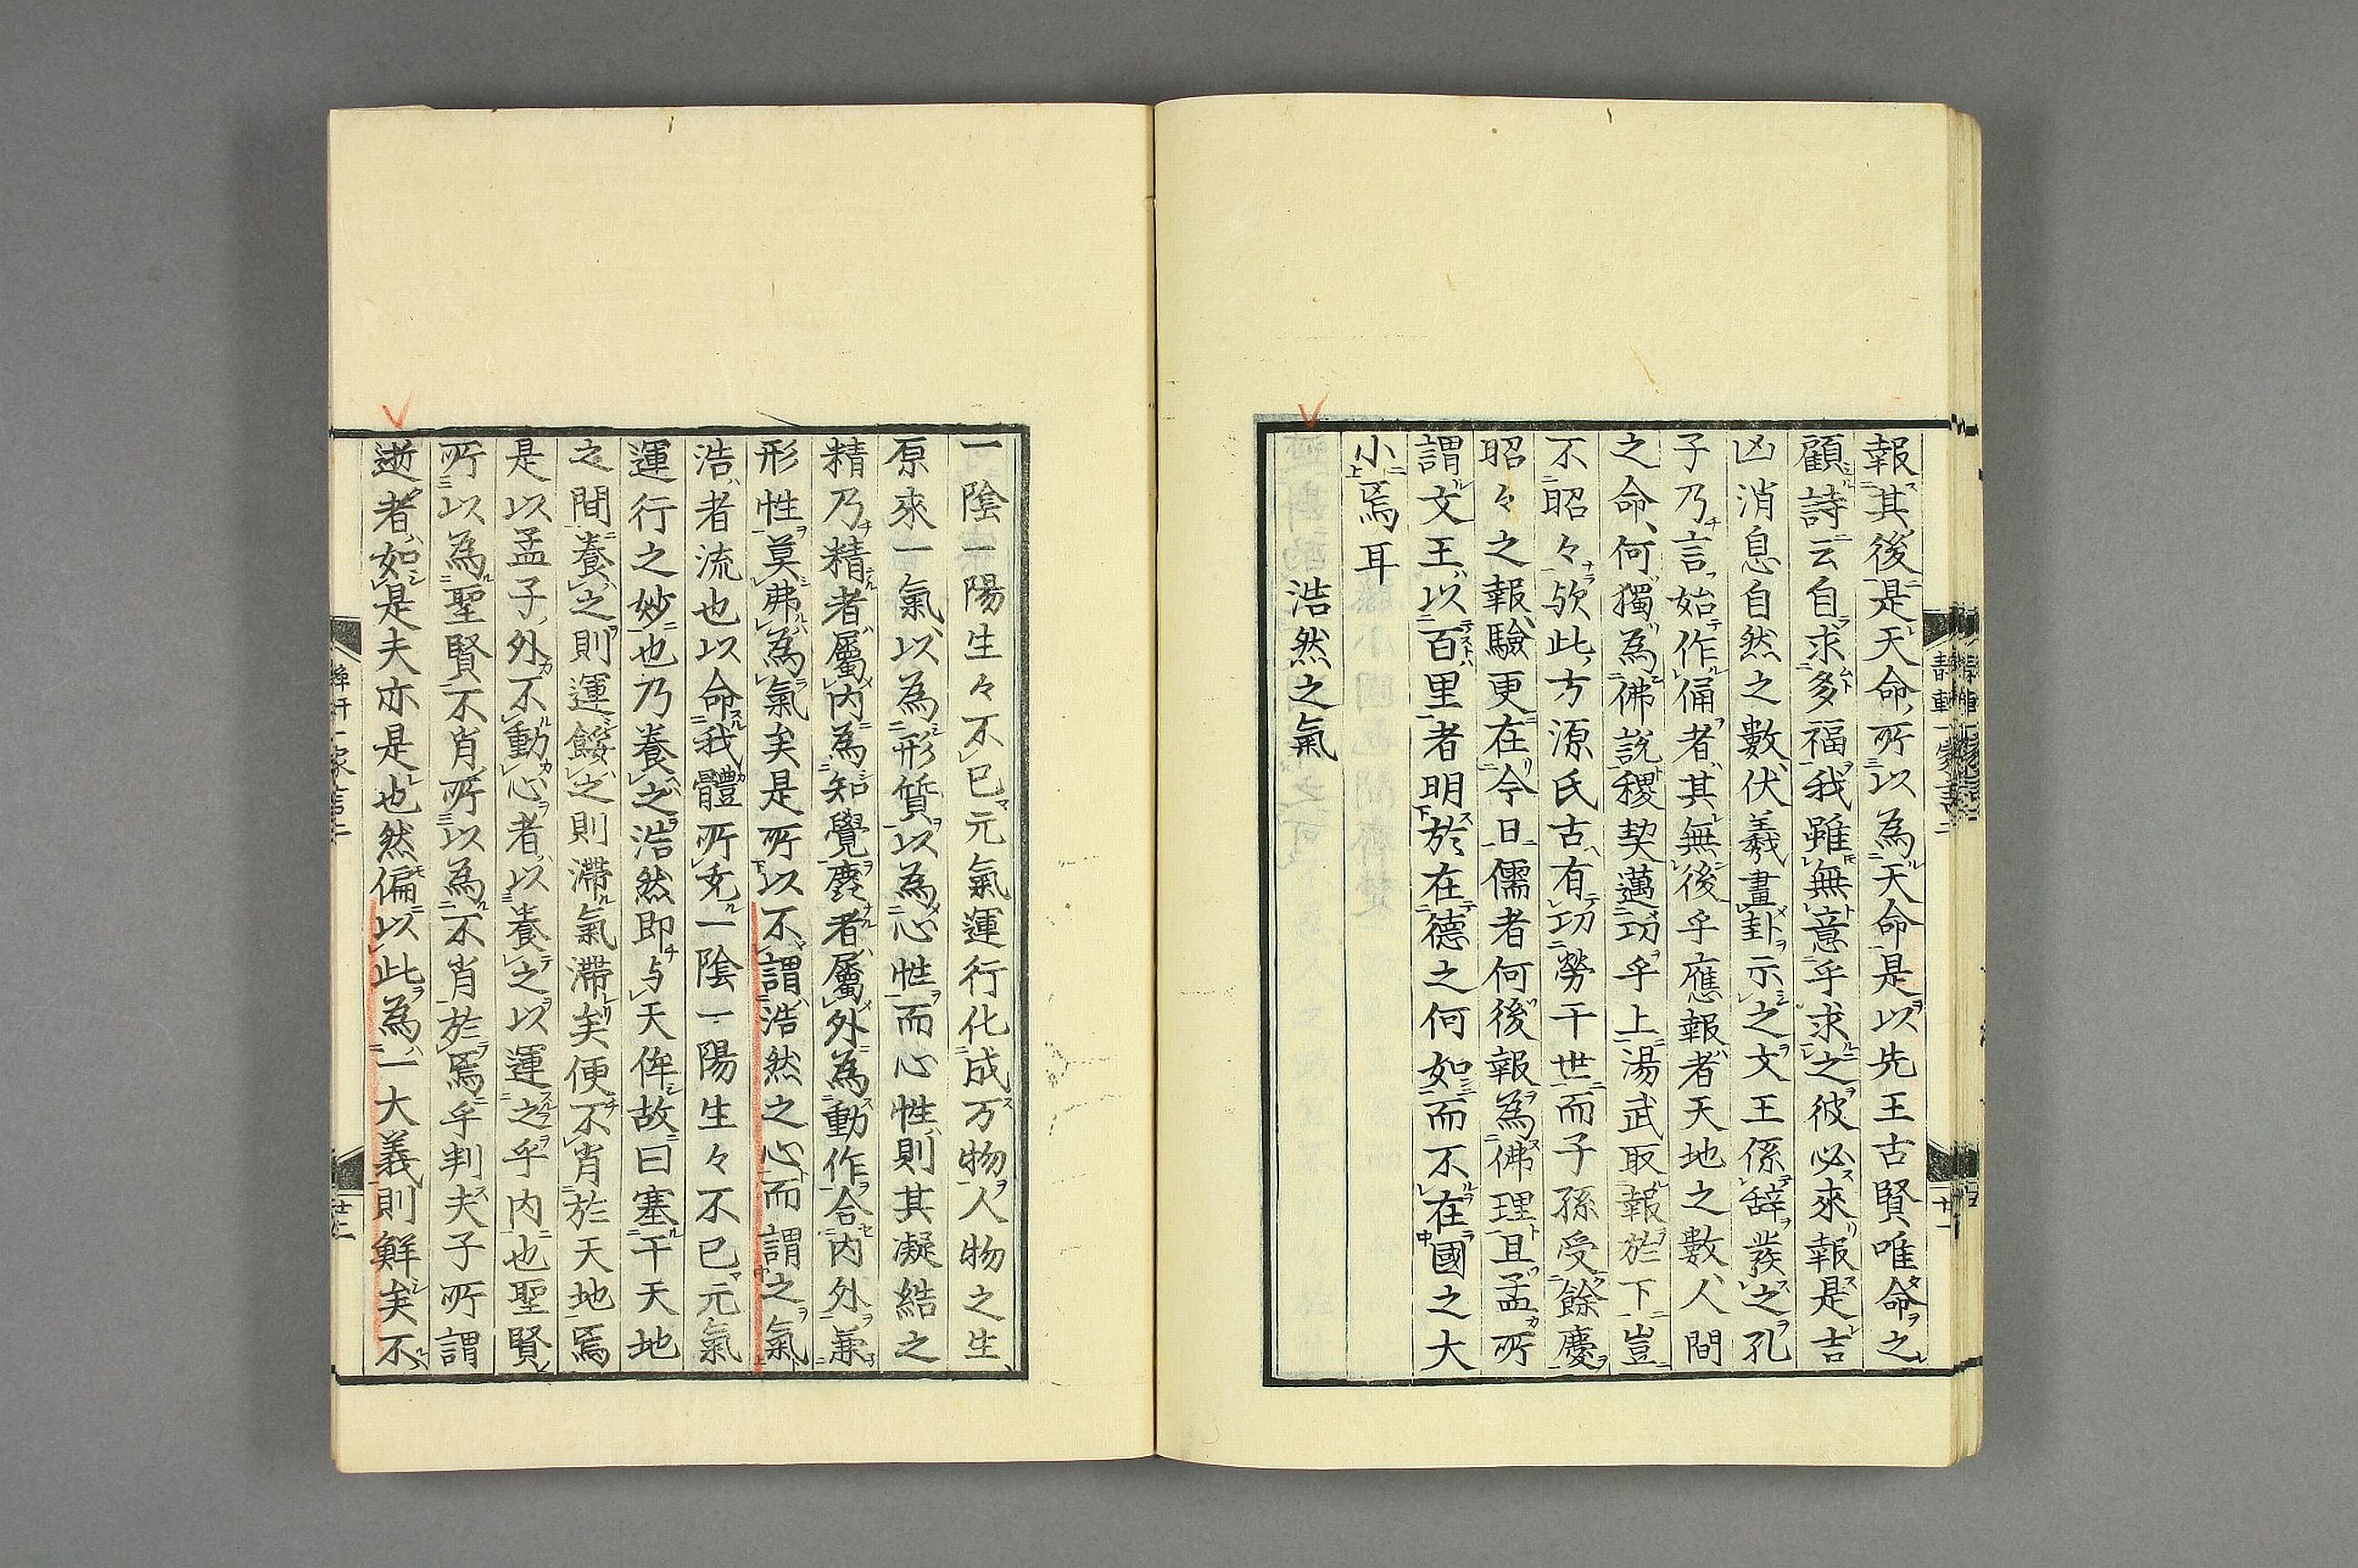 報其後是天命所以為天命是以先王古賢唯命之
顧詩云自求多福我雖無意乎求之彼必來報是吉
凶消息自然之數伏羲畫卦示之文王係辞发之孔
子乃言始作俑者其無後乎應報者天地之數人間
之命何獨為佛說稷契邁功乎上湯武取報於下豈
不昭々欤此方源氏古有功勞干世而子孫受餘慶
昭々之報驗更在今日儒者何後報為佛理且孟所
謂文王以百里者明於在德之何如而不在國之大
小焉耳
浩然之氣
一陰一陽生々不已元氣運行化成万物人物之生
原來一氣以為形質以為心性而心性則其凝結之
精乃精者屬内為知覺麄者屬外為動作合内外兼
形性莫弗為氣矣是所以不謂浩然之心而謂之氣
浩者流也以命我體所充一陰一陽生々不已元氣
運行之妙也乃養之浩然即与天侔故曰塞干天地
之間養之則運餒之則滯氣滯矣便不肖於天地焉
是以孟子外不動心者以養之以運之乎内也聖賢
所以為聖賢不肖所以為不肖於焉乎判夫子所謂
逝者如是夫亦是也然偏以此為一大義則鮮矣不